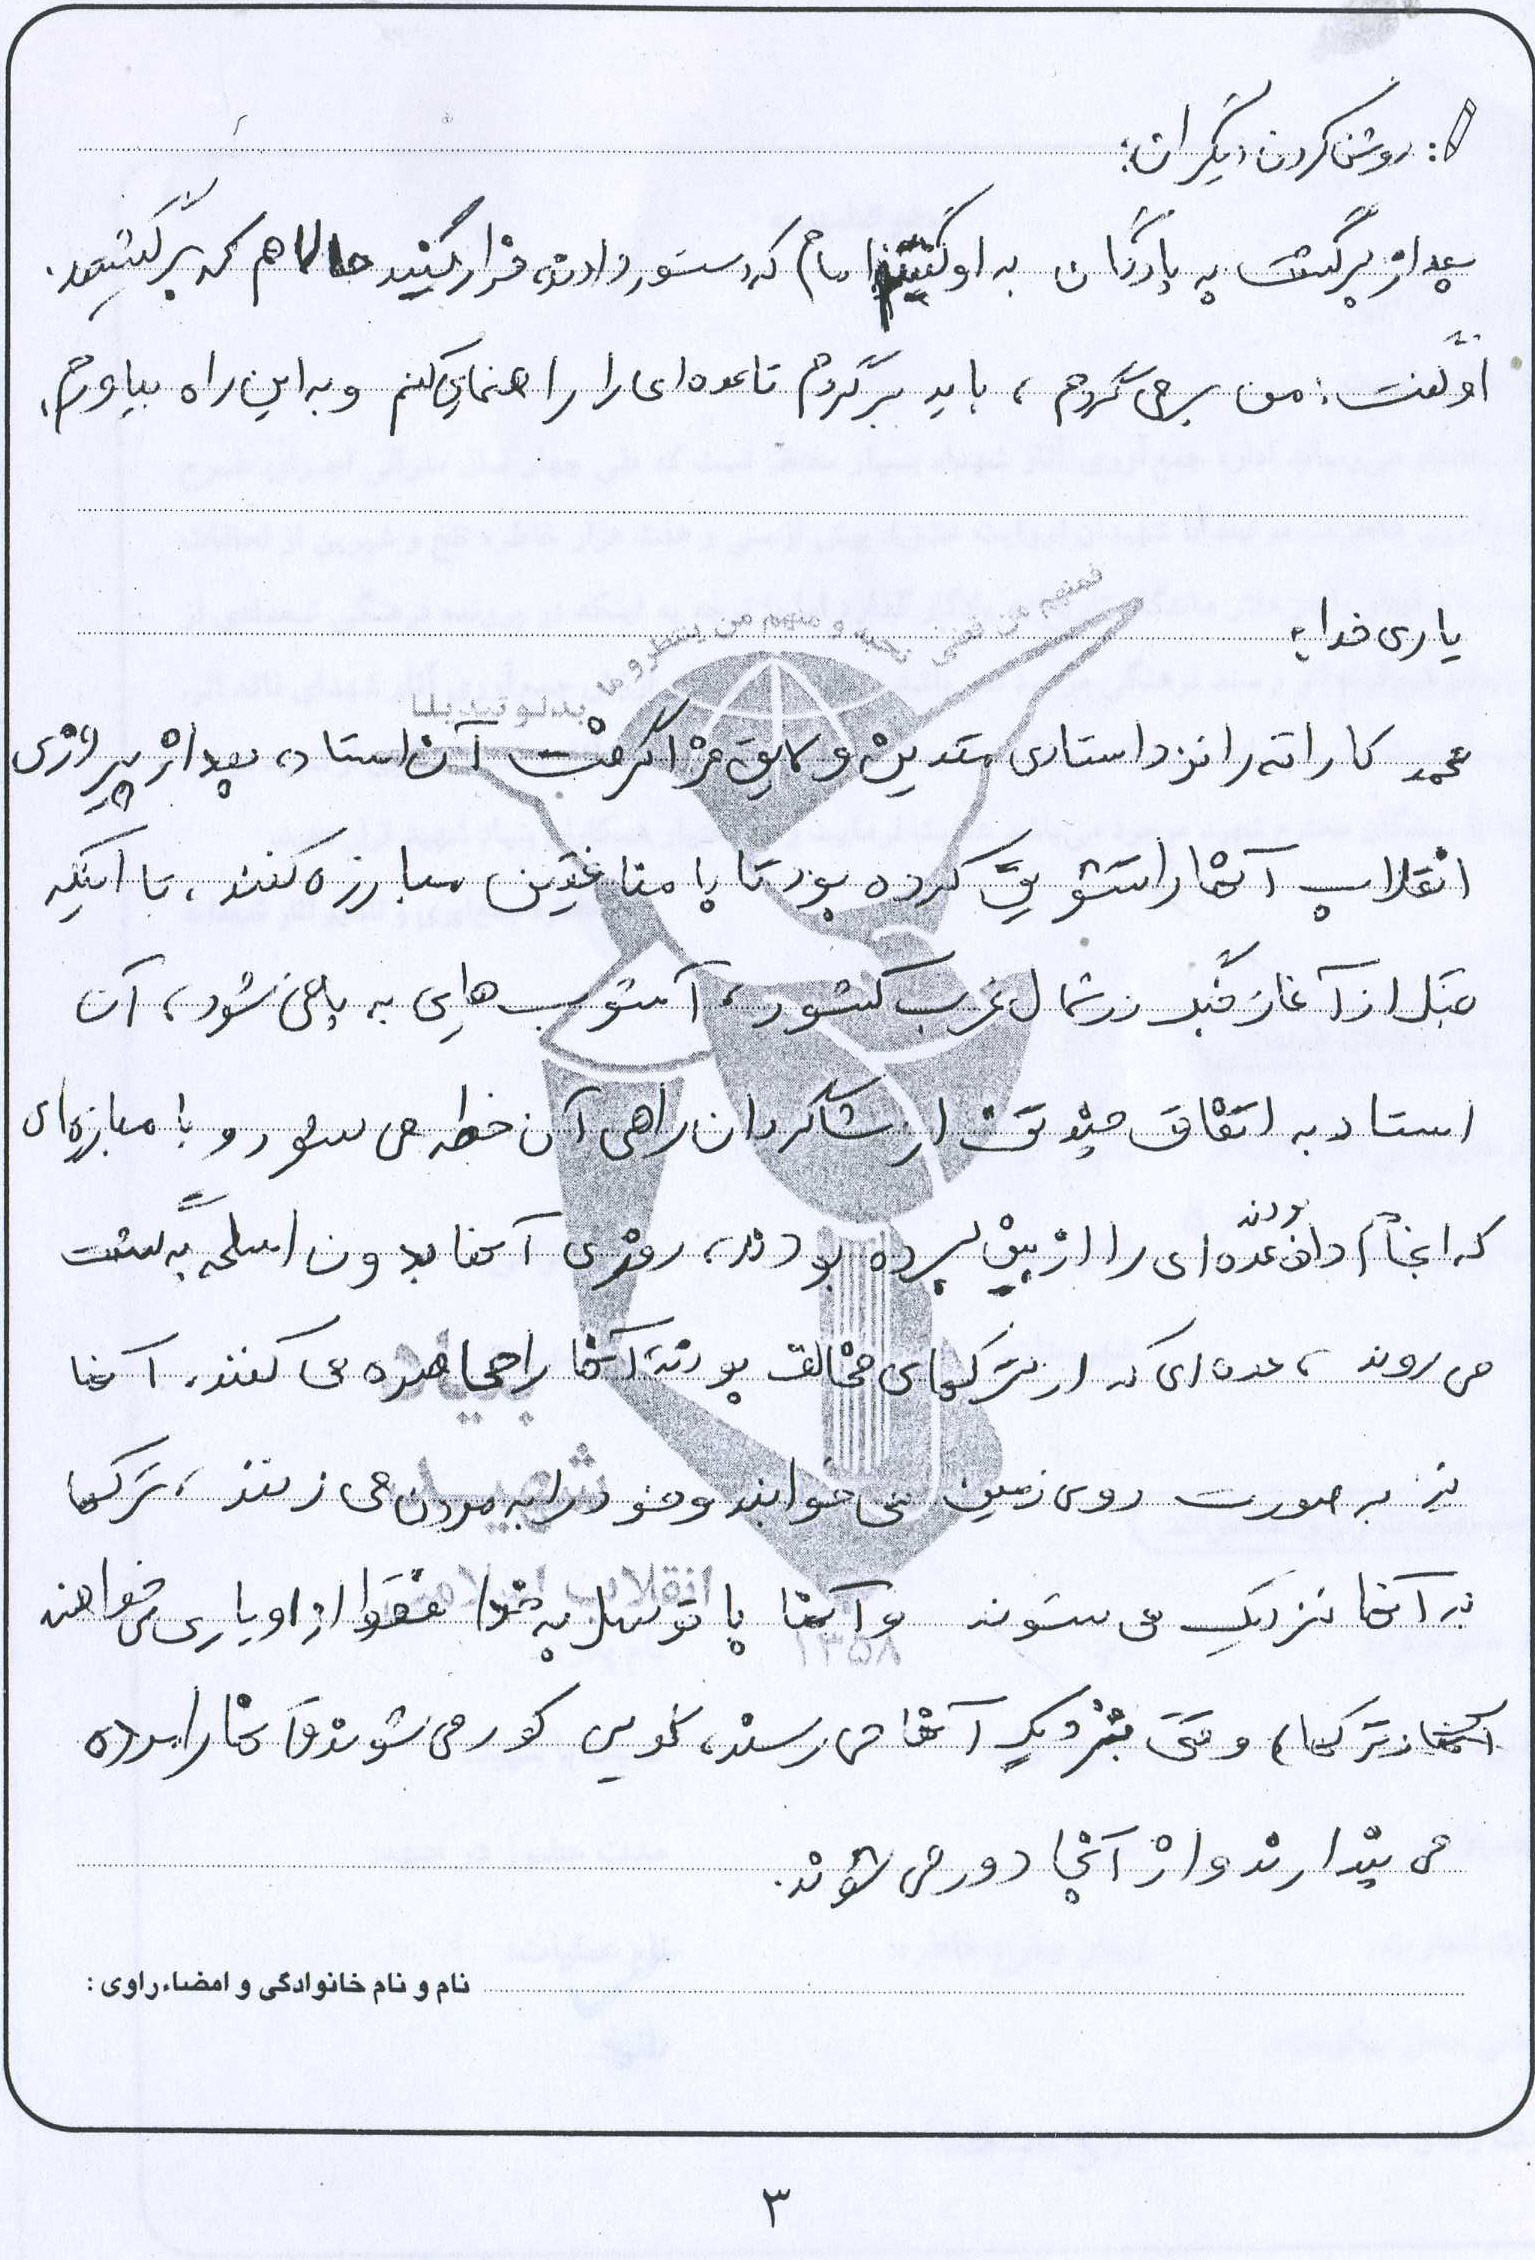 : روشن کردن دیگران:
بعد از برگشت به پادگان به او گفتیم امام که دستور دادند، فرار کنید حالا هم که برگشتید.
او گفت: من برمی گردم، باید برگردم تا عده ای را راهنمایی کنم و به این راه بیاورم.
فمنهم من قضی نحبه و منهم من ینتظر و ما بدلو تبدیلا
یاری خدا:
محمد کاراته را نزد استادی متدین و لایق فرا گرفت آن استاد، بعد از پیروزی
انقلاب آنها را تشویق کرده بود تا با منافقین مبارزه کنند، تا اینکه
قبل از آغاز جنگ در شمال غرب کشور، آشوب هایی به پا می شود، آن
استاد به اتفاق چند تن از شاگردان راهی آن خطه می شود و با مبارزه ای
که انجام داده بودند عده ای را از بین برده بودند، روزی آنها بدون اسلحه به گشت
می روند، عده ای که از ترکهای مخالف بودند آنها را محاصره می کنند. آنها
نیز به صورت روی زمین می خوابند و خود را به مردن می زنند، ترکها
به آنها نزدیک می شوند و آنها با توسل به خدا فقط از او یاری می خواهند
آنها (ترکها) وقتی به نزدیک آنها می رسند، گویی کور می شوند و آنها را مرده
می پندارند و از آنجا دور می شوند.
بنیاد
شهید
انقلاب اسلامی
۱۳۵۸
نام و نام خانوادگی و امضاء راوی:
۳